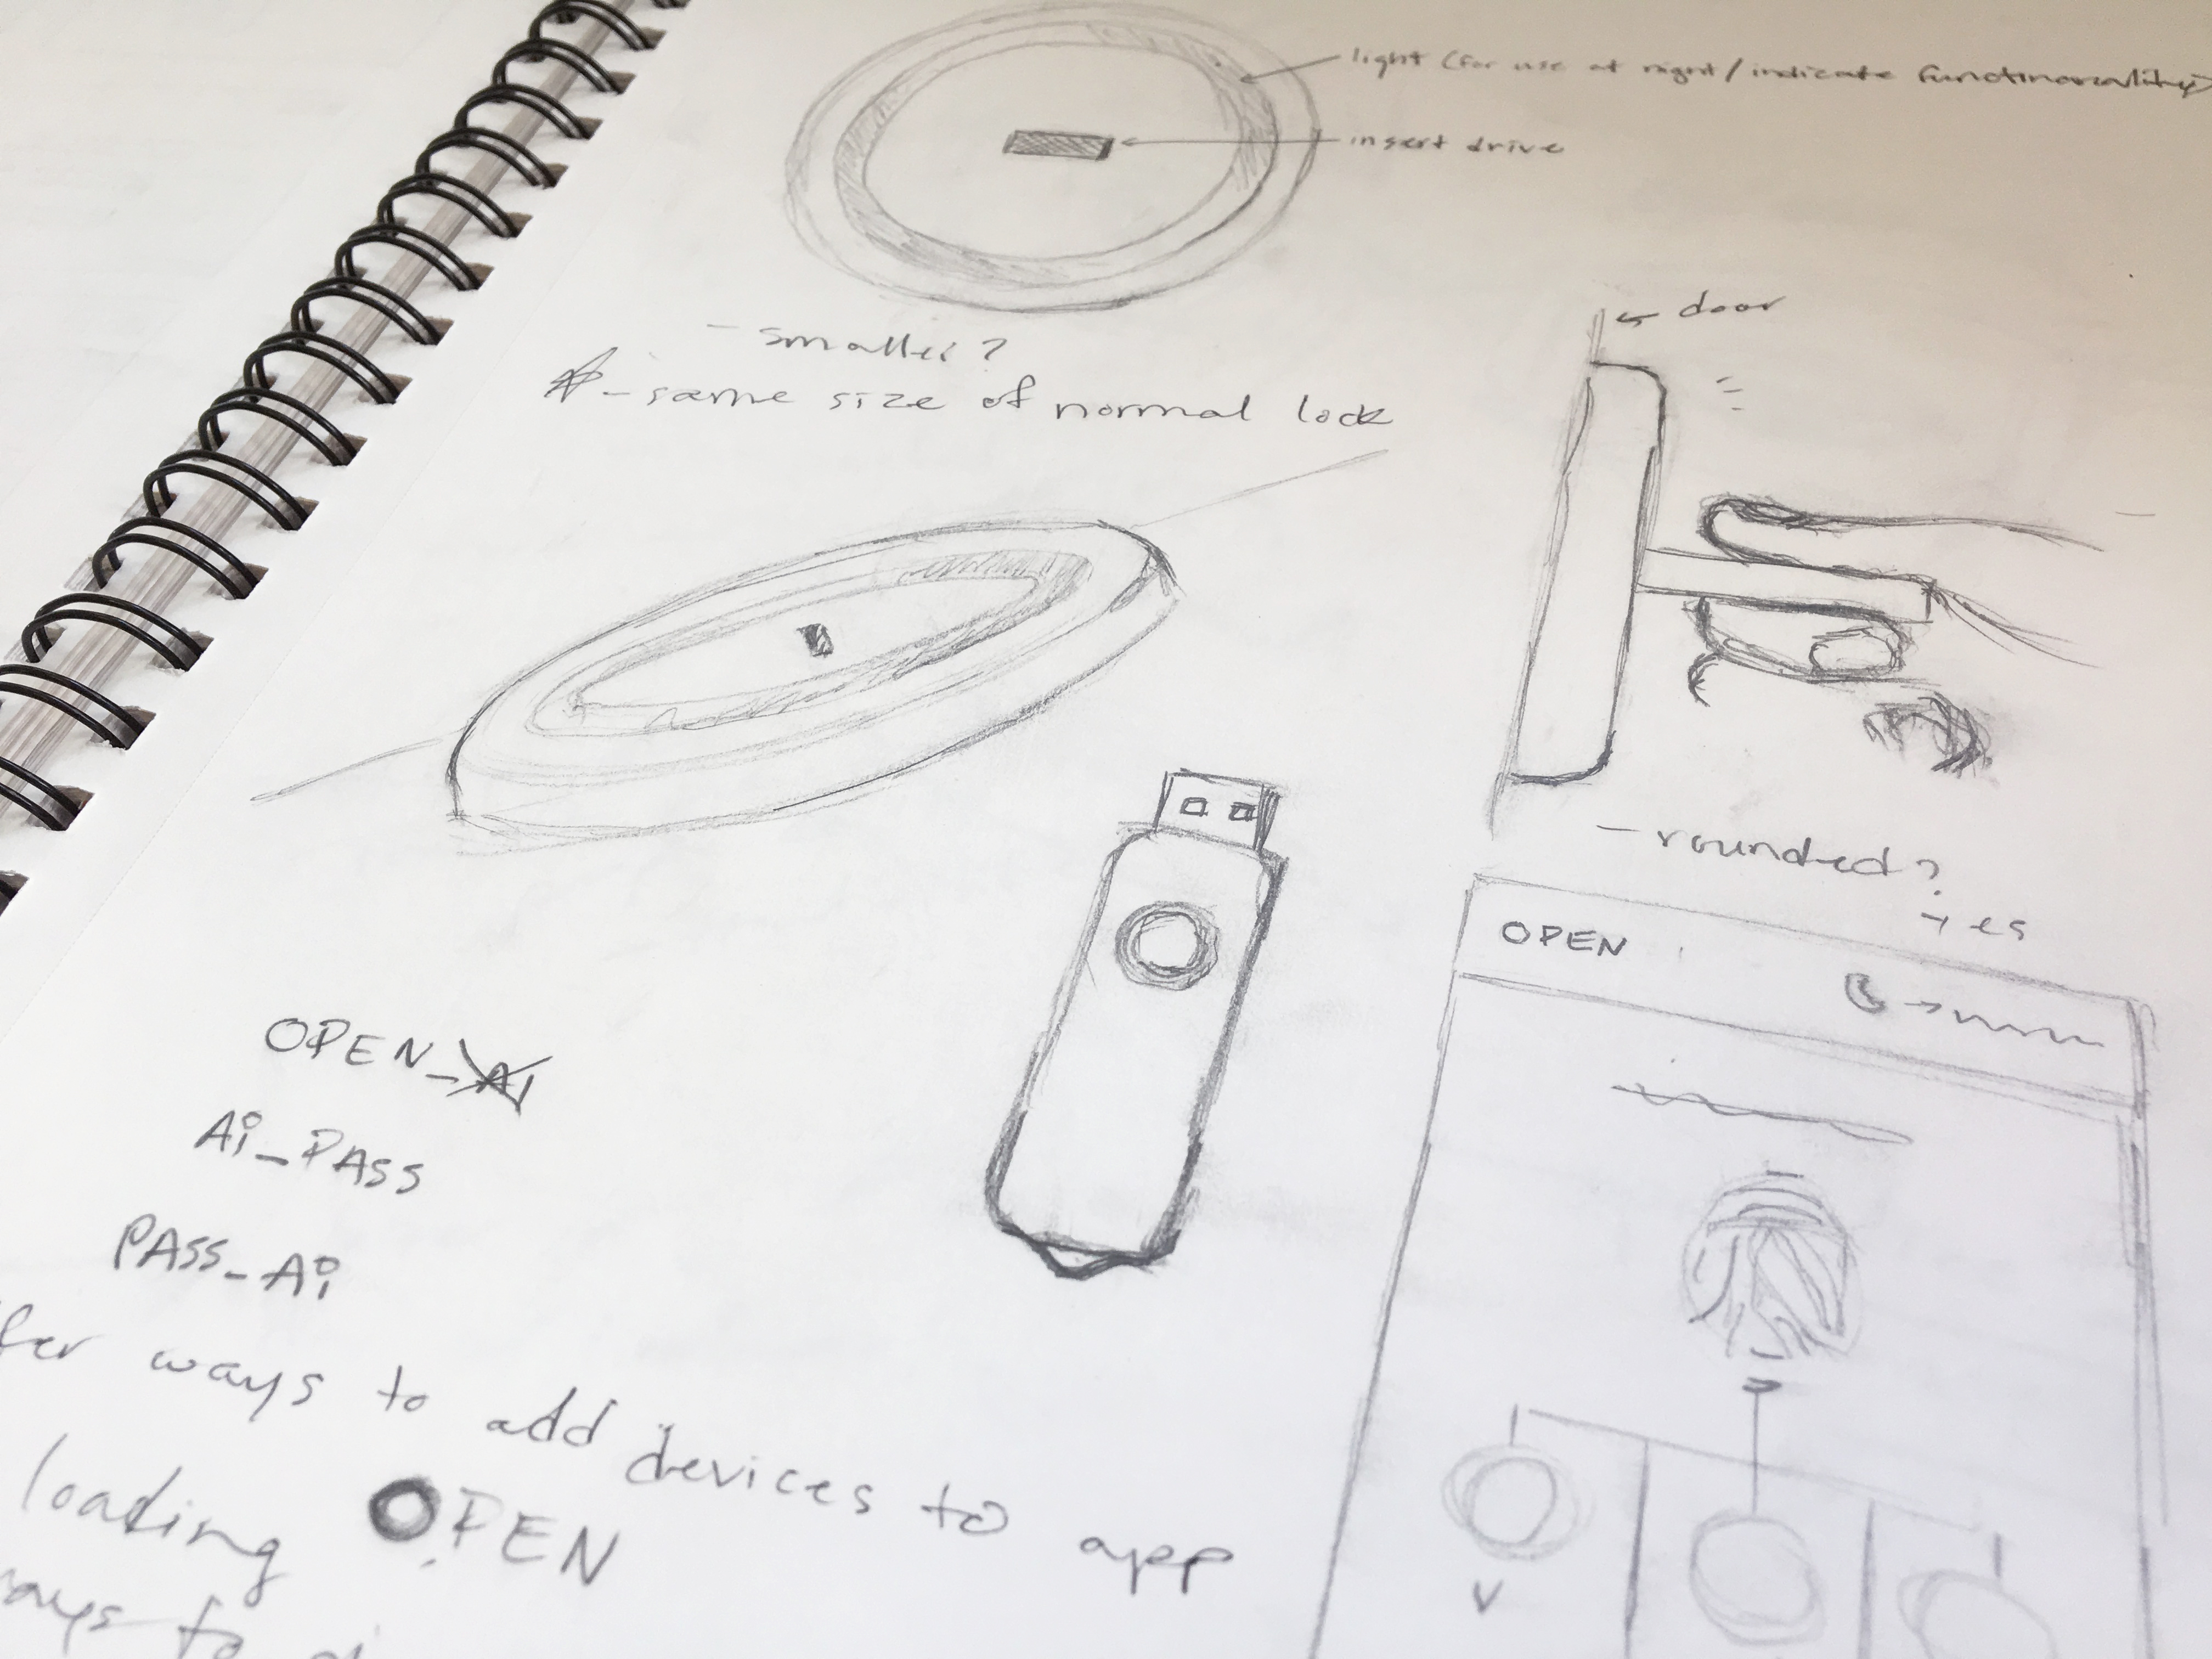 light (for use at night/indicate functinonality)
insert drive
door
- smaller?
- same size of normal lock
- rounded?
yes
OPEN
OPEN_Ai
Ai_PASS
PASS_Ai
ways to add devices to app
loading OPEN
to